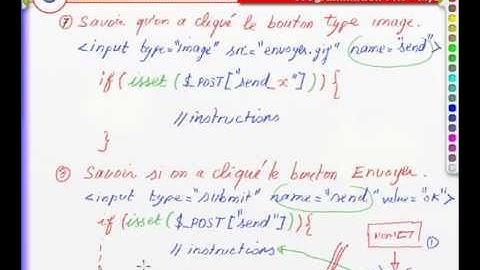 ⑦ Savoir qu'on a cliqué le bouton type image.
<input type="image" src="envoyer.gif" name="send">
if(isset($_POST["send_x"])){
//instructions
}
⑧ Savoir si on a cliqué le bouton Envoyer.
<input type="submit" name="send" value="ok">
if(isset($_POST["send"])){
//instructions
①